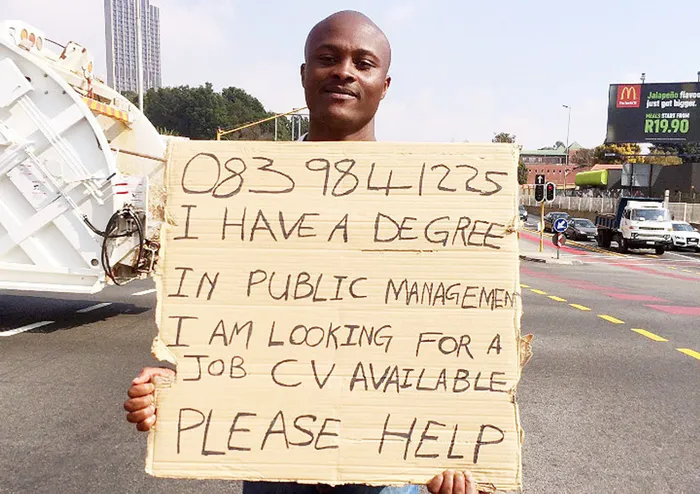 083 984 1225
I HAVE A DEGREE
IN PUBLIC MANAGEMEN
I AM LOOKING FOR A
JOB CV AVAILABLE
PLEASE HELP
Jalapeño flavou
just got bigger.
MEALS START FROM
R19.90